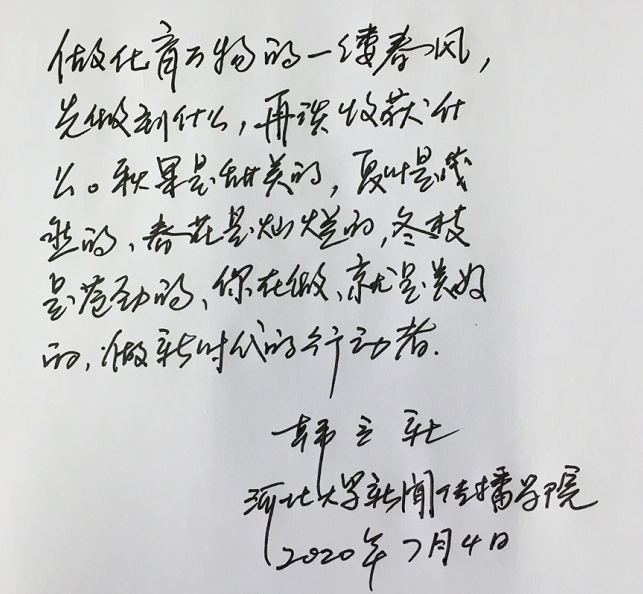 做化育万物的一缕春风，
先做到什么，再谈收获什
么。秋果是甜美的，夏叶是茂
盛的、春花是灿烂的，冬枝
是苍劲的、你在做、就是美好
的，做新时代的行动者.
韩立新
河北大学新闻传播学院
2020年7月4日